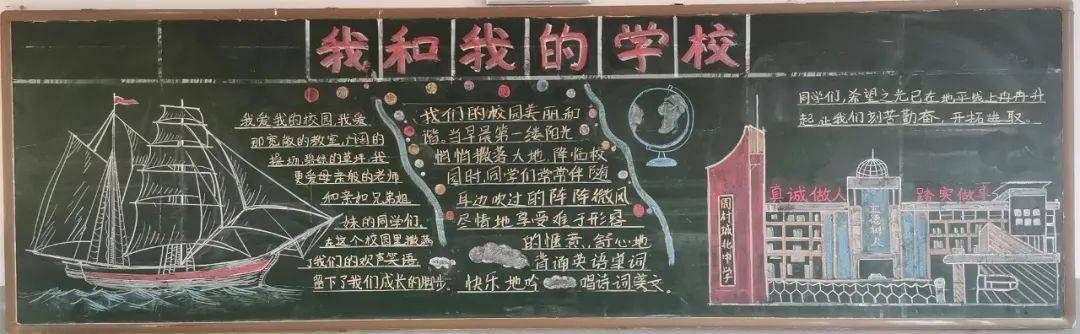 我和我的学校
我爱我的校园,我爱
那宽敞的教室,广阔的
操场,碧绿的草坪,我
更爱母亲般的老师
和亲如兄弟姐
妹的同学们,
在这个校园里撒落
了我们的欢声笑语
留下了我们成长的脚步。
我们的校园美丽和
谐。当早晨第一缕阳光
悄悄撒落大地,降临校
园时,同学们常常伴随
耳边吹过的阵阵微风
尽情地享受难于形容
的惬意、舒心地
背诵英语单词
快乐地吟唱诗词美文。
同学们,希望之光已在地平线上冉冉升
起,让我们刻苦勤奋,开拓进取。
周村城北中学
真诚做人
立德树人
踏实做事